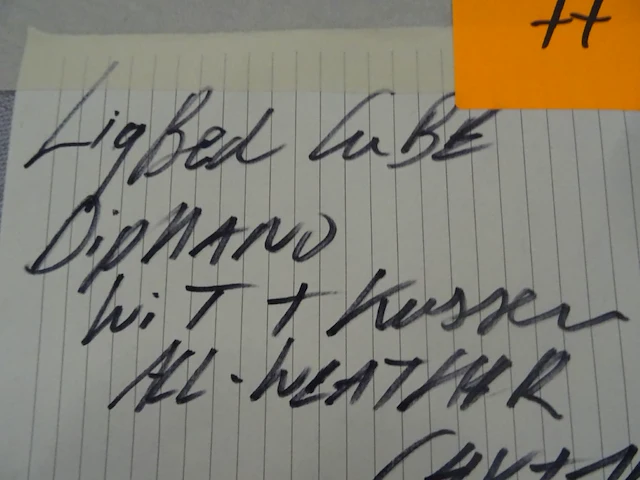 LigBed CuBE
DipMAND
WiT + Kussen
ALL-WEATHER